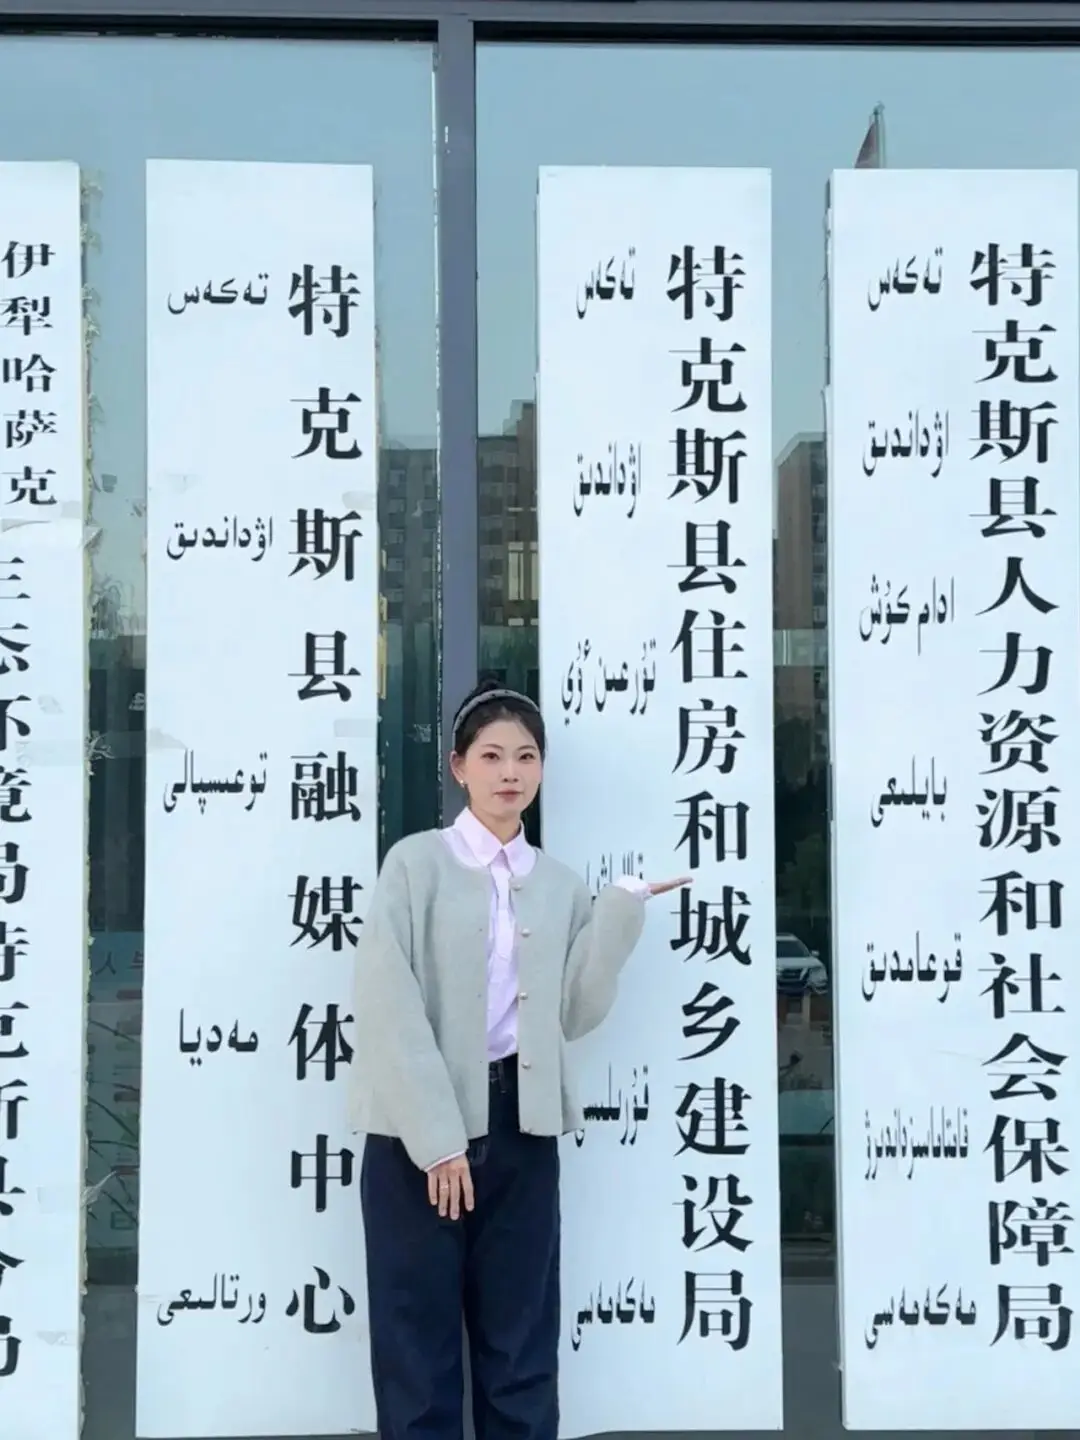 伊犁哈萨克
生态环境局特克斯县分局
تەكەس
اۋداندىق
توعىسپالى
مەديا
ورتالىعى
特克斯县融媒体中心
تەكەس
اۋداندىق
تۇرعىن ٴۇي
قۇرىلىسى
مەكەمەسى
特克斯县住房和城乡建设局
تەكەس
اۋداندىق
ادام كۇش
بايلىعى
قوعامدىق
قامتاماسىزداندىرۋ
مەكەمەسى
特克斯县人力资源和社会保障局